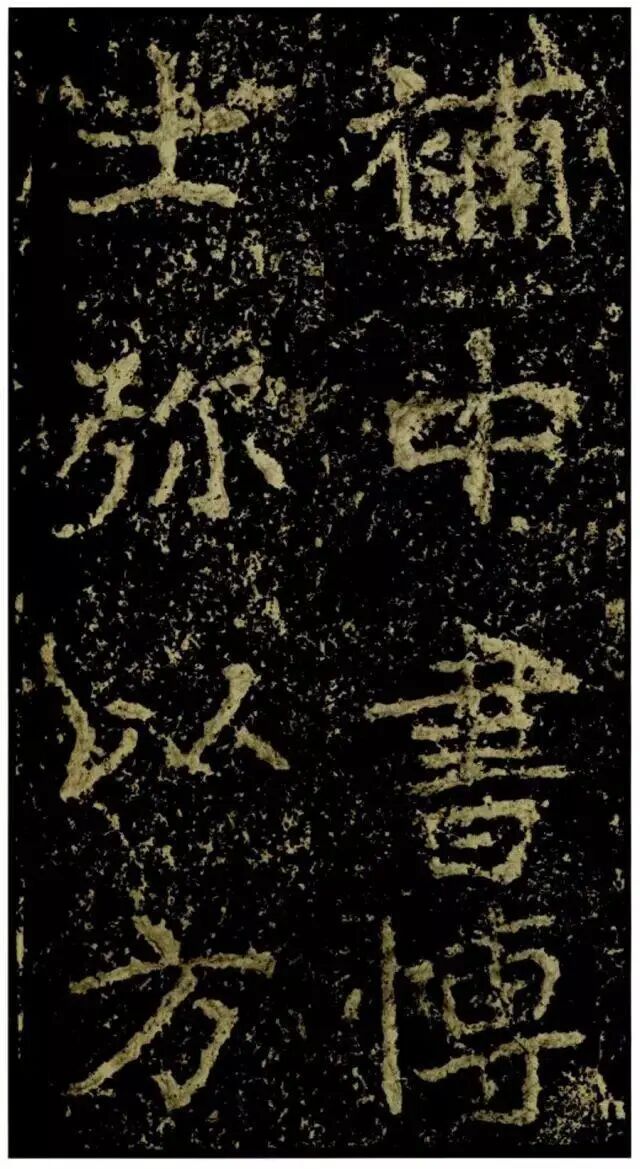 補中書博
士弥以方